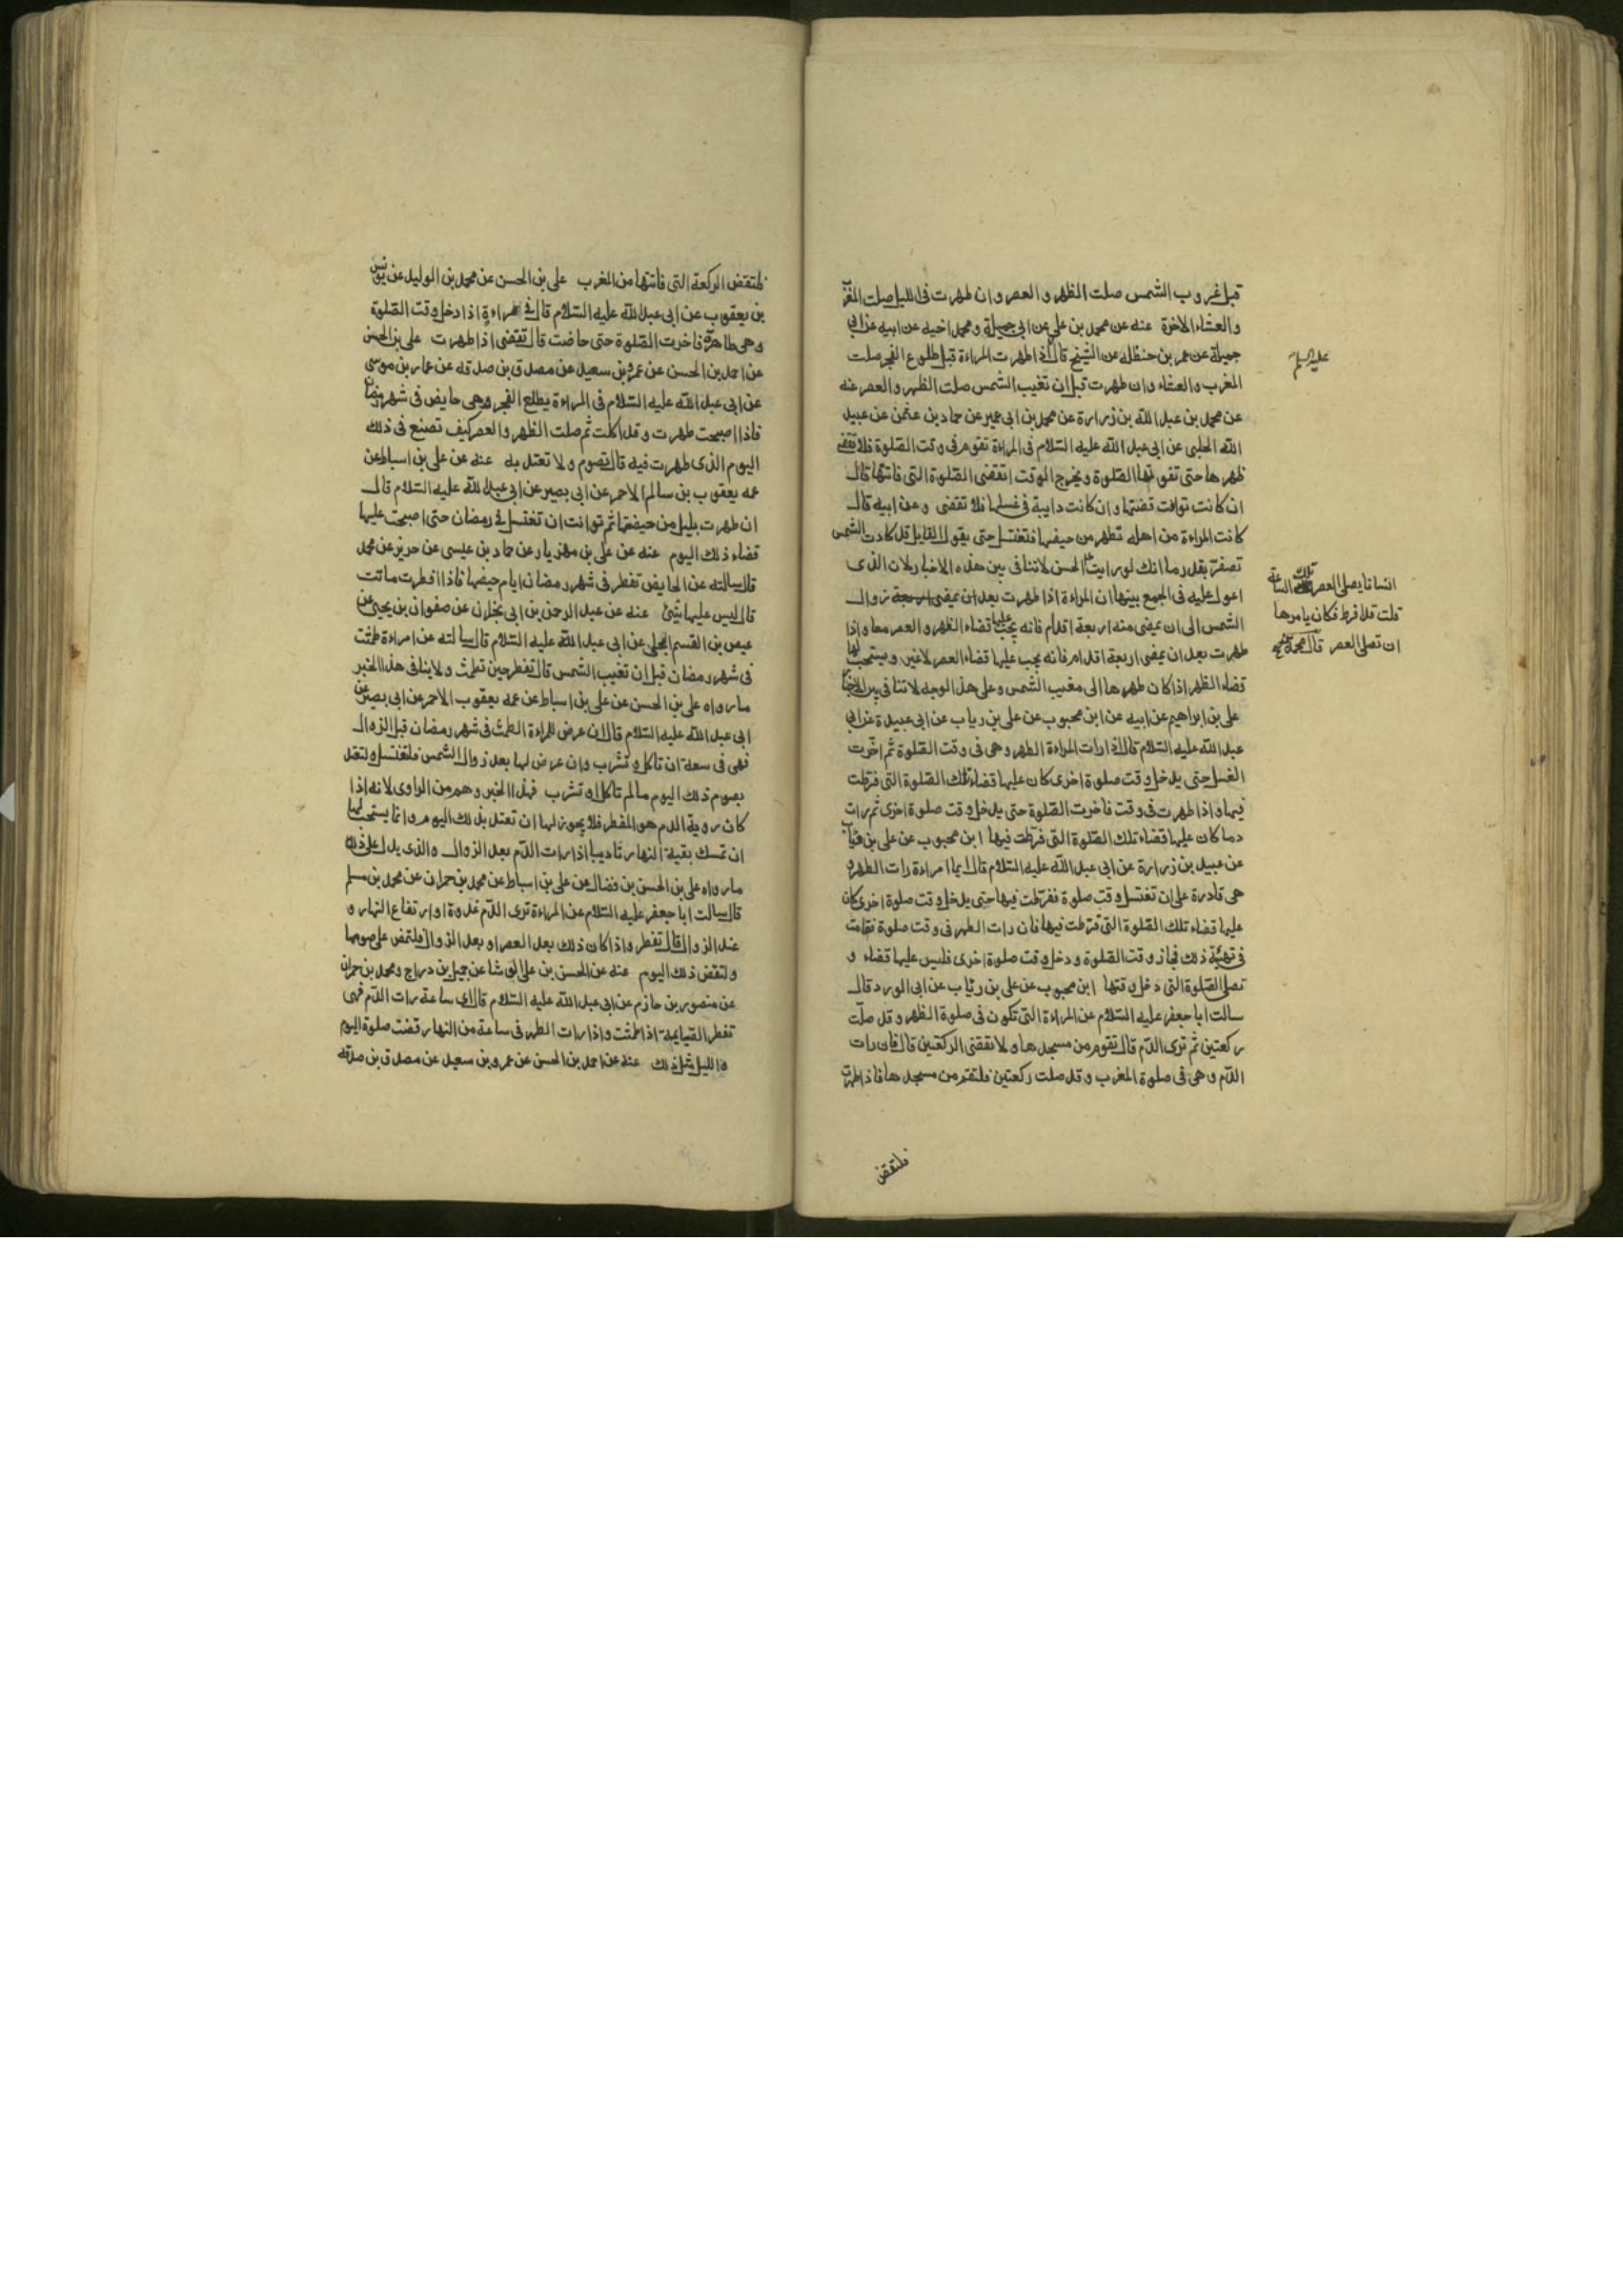 قبل غروب الشمس صلت الظهر و العصر و ان طهرت فى الليل صلت المغرب
و العشاء الاخرة عنه عن محمد بن على عن ابى جميلة و محمد اخيه عن ابيه عن ابى
جميلة عن عمر بن حنظله عن الشيخ قال اذا طهرت المراءة قبل طلوع الفجر صلت
عليه السلم
المغرب و العشاء و ان طهرت قبل ان تغيب الشمس صلت الظهر و العصر عنه
عن محمد بن عبد الله بن زرارة عن محمد بن ابى عمير عن حماد بن عثمن عن عبيد
الله الحلبى عن ابى عبد الله عليه السّلام فى المراءة تقوم فى وقت الصّلوة فلا تقضى
ظهرها حتى تفوتها الصّلوة و يخرج الوقت اتقضى الصّلوة التى فاتتها قال
ان كانت توانت قضتها و ان كانت دايبة فى غسلها فلا تقضى و عن ابيه قال
كانت المراءة من اهله تطهر من حيضها فتغتسل حتى يقول القايل قد كادت الشمس
تصفرّ بقدر ما انك لو رايت الحسن لا تنافى بين هذه الاخبار لان الذى
انسانا يصلى العصر تلك الساعة
قلت قد افرط فكان يامرها
ان تصلى العصر قال محمد بن الحسن
اعول عليه فى الجمع بينها ان المراءة اذا طهرت بعد زوال
الشمس الى ان يمضى منه اربعة اقدام فانه يجب عليها قضاء الظهر و العصر معا و اذا
طهرت بعد ان يمضى اربعة اقدام فانه يجب عليها قضاء العصر لا غير و يستحب لها
قضاء الظهر اذا كان طهرها الى مغيب الشمس و على هذا الوجه لا تنافى بين الاخبار
على بن ابراهيم عن ابيه عن ابن محبوب عن على بن رياب عن ابى عبيدة عن ابى
عبد الله عليه السّلام قال اذا رات المراءة الطهر و هى فى وقت الصّلوة ثم اخّرت
الغسل حتى يدخل وقت صلوة اخرى كان عليها قضاء تلك الصّلوة التى فرّطت
فيها و اذا طهرت فى وقت فاخرت الصّلوة حتى يدخل وقت صلوة اخرى ثم رات
دما كان عليها قضاء تلك الصّلوة التى فرّطت فيها ابن محبوب عن على بن رئاب
عن عبيد بن زرارة عن ابى عبد الله عليه السّلام قال ايما امراءة رات الطهر و
هى قادرة على ان تغتسل وقت صلوة ففرّطت فيها حتى يدخل وقت صلوة اخرى كان
عليها قضاء تلك الصّلوة التى فرّطت فيها فان رات الطهر فى وقت صلوة فقامت
فى تهيّئة ذلك فجاز وقت الصّلوة و دخل وقت صلوة اخرى فليس عليها قضاء و
تصلى الصّلوة التى دخل وقتها ابن محبوب عن على بن رئاب عن ابى الورد قال
سالت ابا جعفر عليه السّلام عن المراءة التى تكون فى صلوة الظهر و قد صلّت
ركعتين ثم ترى الدّم قال تقوم من مسجدها و لا تقضى الركعتين قال فان رات
الدّم و هى فى صلوة المغرب و قد صلت ركعتين فلتقم من مسجدها فاذا طهرت
فلتقض
فلتقض الركعة التى فاتتها من المغرب على بن الحسن عن محمد بن الوليد عن يونس
بن يعقوب عن ابى عبد الله عليه السّلام قال فى امراءة اذا دخل وقت الصّلوة
و هى طاهرة فاخرت الصّلوة حتى حاضت قال تقضى اذا طهرت على بن الحسن
عن احمد بن الحسن عن عمرو بن سعيد عن مصدق بن صدقه عن عمار بن موسى
عن ابى عبد الله عليه السّلام فى المراءة يطلع الفجر و هى حايض فى شهر رمضان
فاذا اصبحت طهرت و قد اكلت ثم صلت الظهر و العصر كيف تصنع فى ذلك
اليوم الذى طهرت فيه قال تصوم و لا تعتد به عنه عن على بن اسباط عن
عمه يعقوب بن سالم الاحمر عن ابى بصير عن ابى عبد الله عليه السّلام قال
ان طهرت بليل من حيضتها ثم توانت ان تغتسل فى رمضان حتى اصبحت عليها
قضاء ذلك اليوم عنه عن على بن مهزيار عن حماد بن عيسى عن حريز عن محمد
قال سالته عن الحايض تفطر فى شهر رمضان ايام حيضها فاذا افطرت ماتت
قال ليس عليها شئ عنه عن عبد الرحمن بن ابى نجران عن صفوان بن يحيى عن
عيص بن القسم البجلى عن ابى عبد الله عليه السّلام قال سالته عن امراءة طمثت
فى شهر رمضان قبل ان تغيب الشمس قال تفطر حين تطمث و لا ينافى هذا الخبر
ما رواه على بن الحسن عن على بن اسباط عن عمه يعقوب الاحمر عن ابى بصير عن
ابى عبد الله عليه السّلام قال ان عرض للمراءة الطمث فى شهر رمضان قبل الزوال
فهى فى سعة ان تاكل و تشرب و ان عرض لها بعد زوال الشمس فلتغتسل و لتعتد
بصوم ذلك اليوم ما لم تاكل او تشرب فهذا الخبر وهم من الراوى لانه اذا
كان روية الدم هو المفطر فلا يجوز لها ان تعتد بذلك اليوم و انما يستحب لها
ان تمسك بقية النهار تاديبا اذا رات الدّم بعد الزوال و الذى يدل على ذلك
ما رواه على بن الحسن بن فضال عن على بن اسباط عن محمد بن حمران عن محمد بن مسلم
قال سالت ابا جعفر عليه السّلام عن المراءة ترى الدّم غدوة او ارتفاع النهار و
عند الزوال قال تفطر و اذا كان ذلك بعد العصر او بعد الزوال فلتمض على صومها
و لتقض ذلك اليوم عنه عن الحسن بن على الوشا عن جميل بن دراج و محمد بن حمران
عن منصور بن حازم عن ابى عبد الله عليه السّلام قال اى ساعة رات الدّم فهى
تفطر الصّايمة اذا طمثت و اذا رات الطهر فى ساعة من النهار قضت صلوة اليوم
و الليل مثل ذلك عنه عن احمد بن الحسن عن عمرو بن سعيد عن مصدق بن صدقه